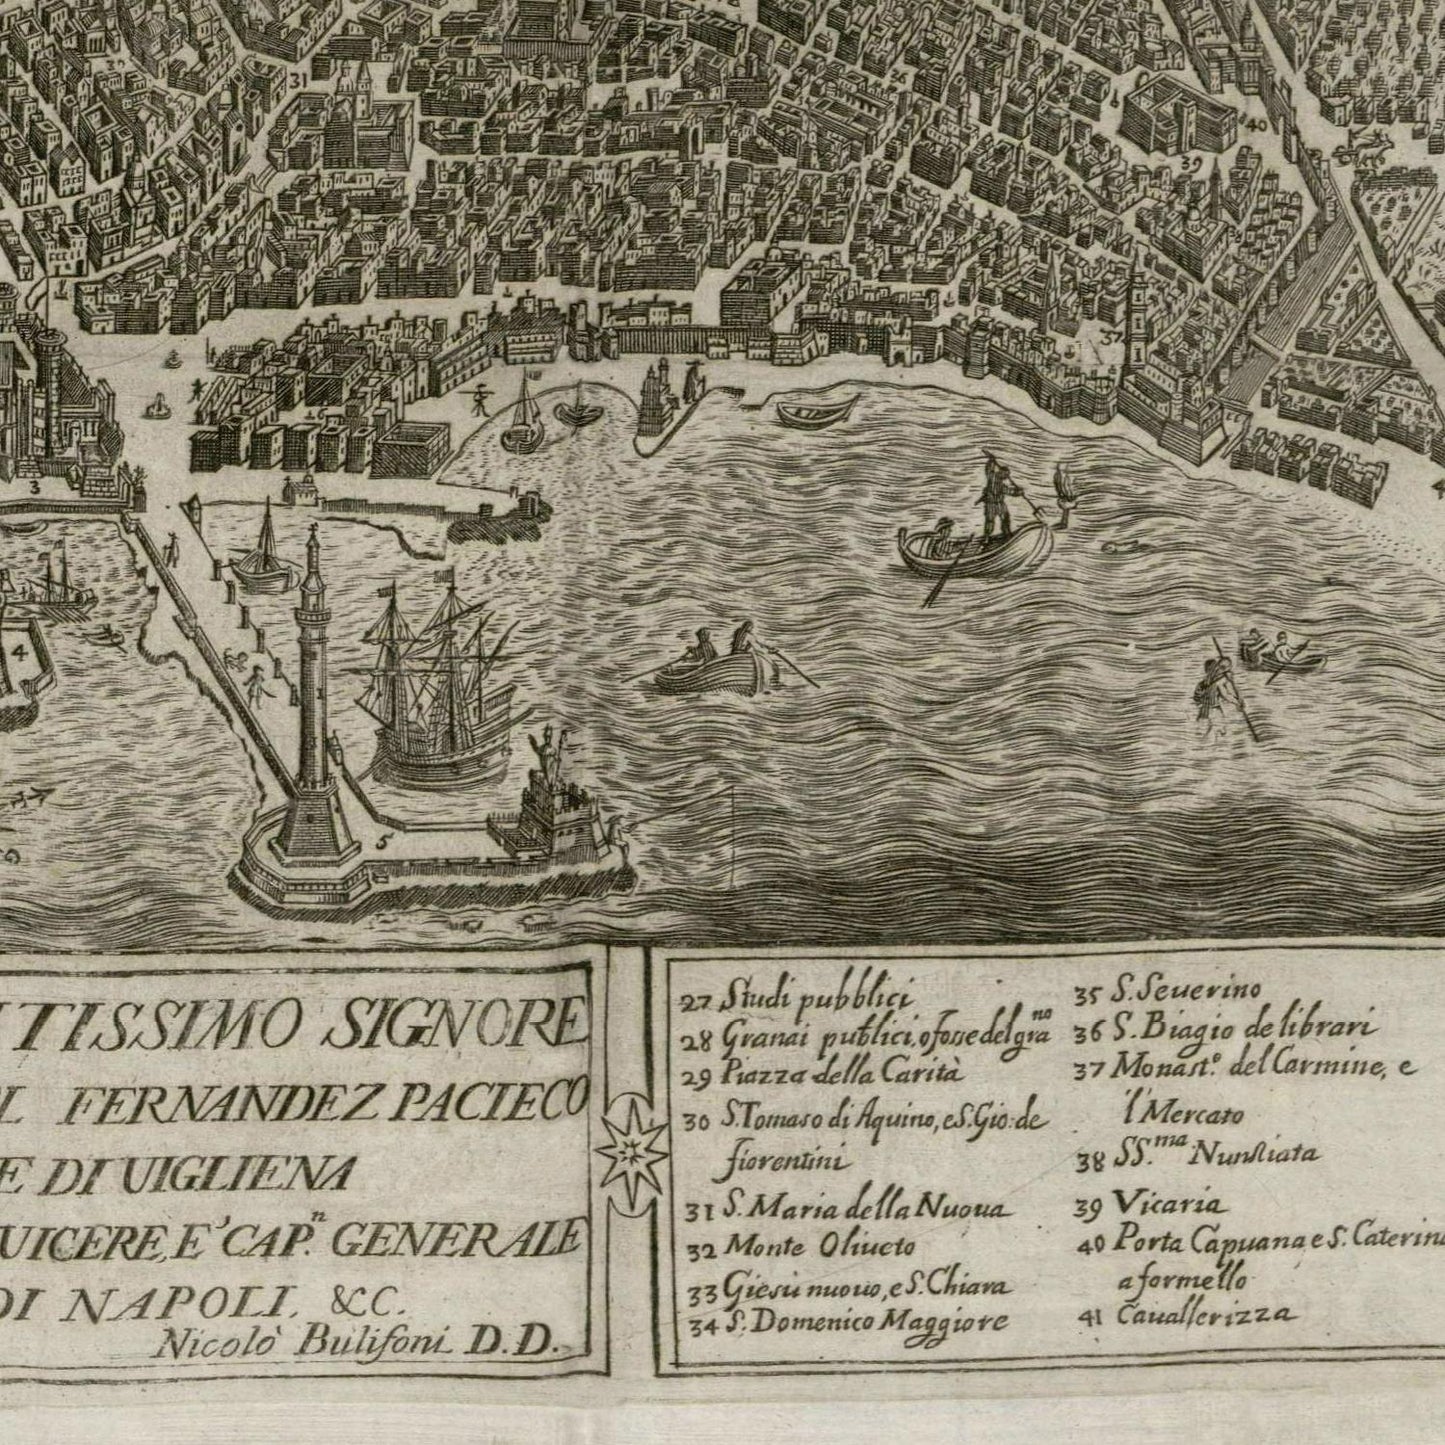 30
31
36
40
39
37
3
4
1
5
TISSIMO SIGNORE
L FERNANDEZ PACIECO
E DI UIGLIENA
UICERE, E' CAP.n GENERALE
DI NAPOLI, &C.
Nicolò Bulifoni D.D.
27 Studi pubblici
28 Granai publici, o fosse del gra.no
29 Piazza della Carità
30 S. Tomaso di Aquino, e S. Gio: de
fiorentini
31 S. Maria della Nuoua
32 Monte Oliueto
33 Giesù nuouo, e S. Chiara
34 S. Domenico Maggiore
35 S. Seuerino
36 S. Biagio de librari
37 Monast.o del Carmine, e
l'Mercato
38 SS.ma Nunsiata
39 Vicaria
40 Porta Capuana e S. Caterina
a formello
41 Cauallerizza